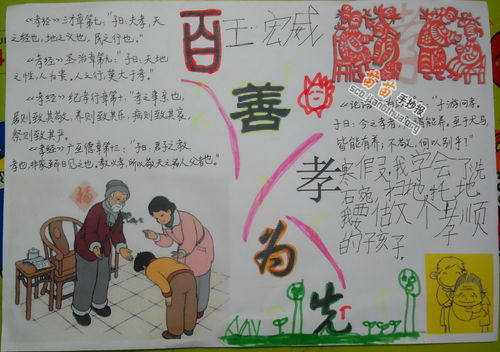 《孝经》三才章第七：“子曰：夫孝，天
之经也，地之义也，民之行也。”
《孝经》圣治章第九：“子曰：天地
之性，人为贵。人之行，莫大于孝。
《孝经》纪孝行章第十，“孝子之事亲也，
居则致其敬，养则致其乐，病则致其忧，
祭则致其严。
《孝经》广至德章第十三：“子曰：君子之教
孝也，非家至而日见之也。教以孝，所以敬天下之为人父者也。”
福
百
善
孝
为
先
王宏威
苗苗手抄报
scb.jianghua.org
子游问孝。
子曰：今之孝者，是谓能养。至于犬马，
皆能有养；不敬，何以别乎？”
寒假里，我学会了洗
石宛，扫地，托地
我要做个孝顺
的子孩子。